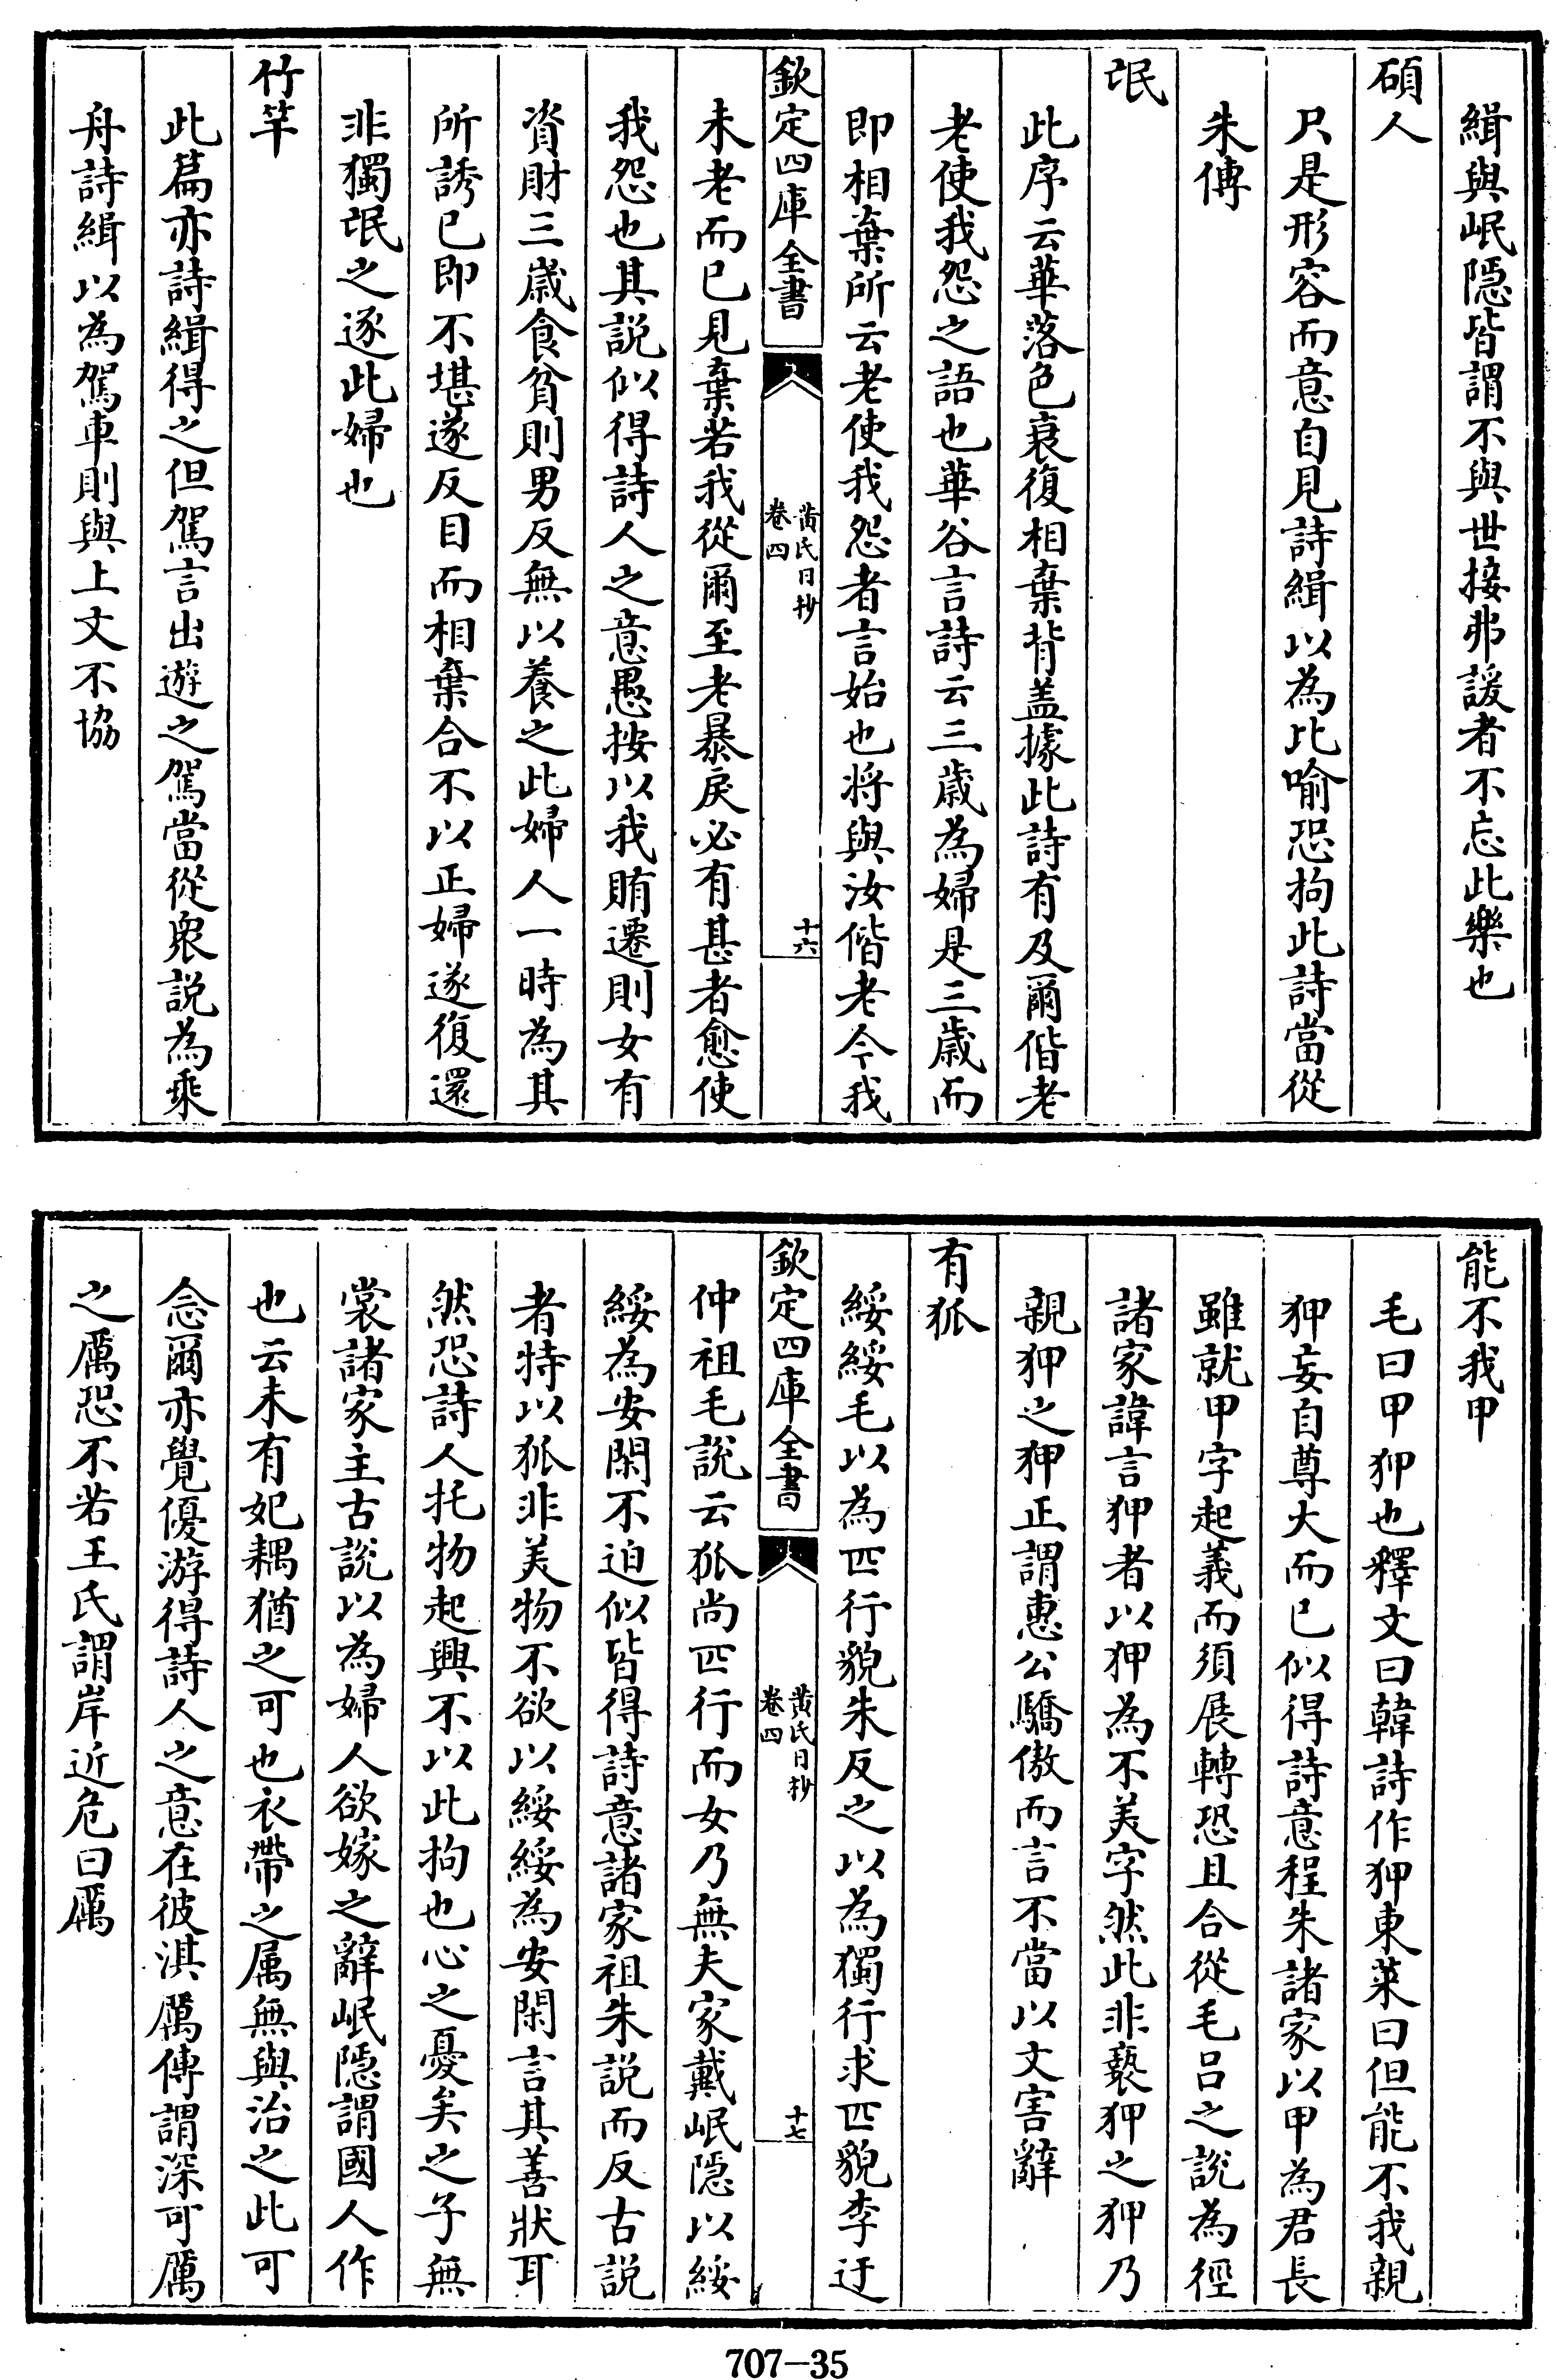 緝與岷隠皆謂不與世接弗諼者不忘此樂也
碩人
只是形容而意自見詩緝以為比喻恐拘此詩當從
朱傳
氓
此序云華落色衰復相棄背盖據此詩有及爾偕老
老使我怨之語也華谷言詩云三歳為婦是三歳而
即相棄所云老使我怨者言始也将與汝偕老今我
欽定四庫全書
黄氏日抄
卷四
十六
未老而已見棄若我從爾至老暴戾必有甚者愈使
我怨也其説似得詩人之意愚按以我賄遷則女有
資財三歳食貧則男反無以養之此婦人一時為其
所誘已即不堪遂反目而相棄合不以正婦遂復還
非獨氓之逐此婦也
竹竿
此篇亦詩緝得之但駕言出遊之駕當從衆説為乘
舟詩緝以為駕車則與上文不協
能不我甲
毛曰甲狎也釋文曰韓詩作狎東萊曰但能不我親
狎妄自尊大而已似得詩意程朱諸家以甲為君長
雖就甲字起義而須展轉恐且合從毛吕之説為徑
諸家諱言狎者以狎為不美字然此非䙝狎之狎乃
親狎之狎正謂惠公驕傲而言不當以文害辭
有狐
綏綏毛以為匹行貌朱反之以為獨行求匹貌李迂
欽定四庫全書
黄氏日抄
卷四
十七
仲祖毛説云狐尚匹行而女乃無夫家戴岷隠以綏
綏為安閑不迫似皆得詩意諸家祖朱説而反古説
者特以狐非美物不欲以綏綏為安閑言其善狀耳
然恐詩人托物起興不以此拘也心之憂矣之子無
裳諸家主古説以為婦人欲嫁之辭岷隠謂國人作
也云未有妃耦猶之可也衣帶之属無與治之此可
念爾亦覺優游得詩人之意在彼淇厲傳謂深可厲
之厲恐不若王氏謂岸近危曰厲
707-35